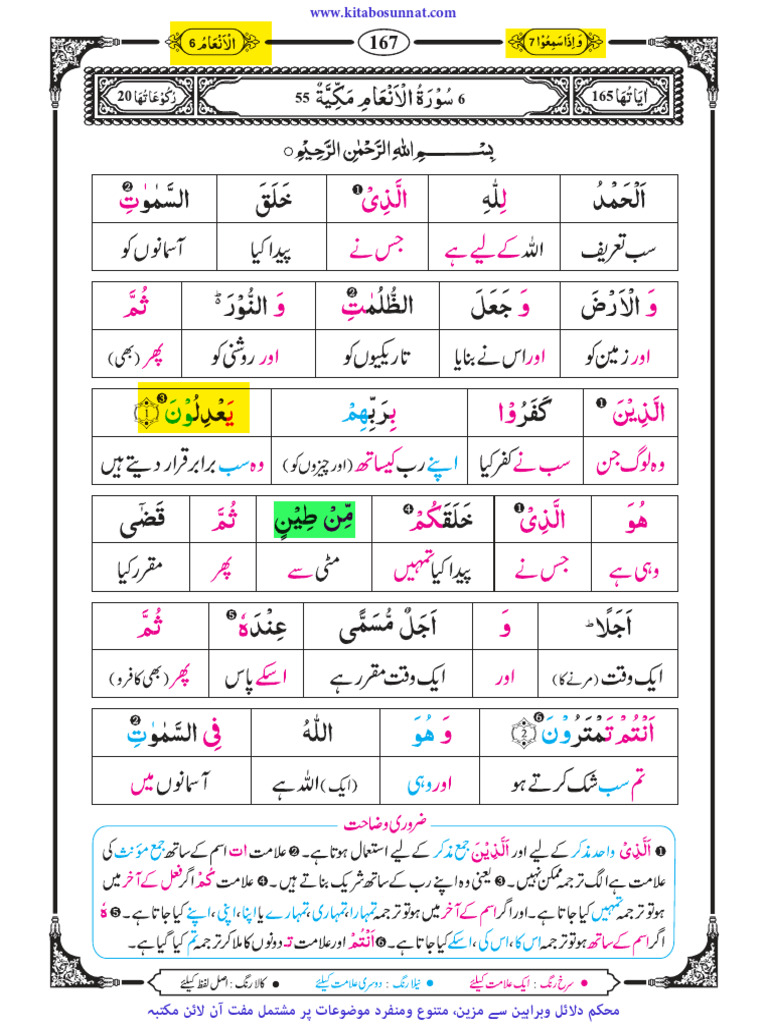 www.kitabosunnat.com
وَاِذَاسَمِعُوْا 7 167 اَلْاَنْعَامُ 6
اٰيَاتُهَا 165 6 سُوْرَةُ الْاَنْعَامِ مَكِّيَّةٌ 55 رُكُوْعَاتُهَا 20
بِسْمِ اللهِ الرَّحْمٰنِ الرَّحِيْمِ ○
اَلْحَمْدُ لِلّٰهِ الَّذِىْ❶ خَلَقَ السَّمٰوٰتِ❷
سب تعریف اللہ کے لیے ہے جس نے پیدا کیا آسمانوں کو
وَ الْاَرْضَ وَ جَعَلَ الظُّلُمٰتِ❷ وَ النُّوْرَ ؕ ثُمَّ
اور زمین کو اور اس نے بنایا تاریکیوں کو اور روشنی کو پھر (بھی)
الَّذِيْنَ❶ كَفَرُوْا بِرَبِّهِمْ يَعْدِلُوْنَ❸ ﴿1﴾
وہ لوگ جن سب نے کفر کیا اپنے رب کیساتھ (اور چیزوں کو) وہ سب برابر قرار دیتے ہیں
هُوَ الَّذِىْ❶ خَلَقَكُمْ❹ مِّنْ طِيْنٍ ثُمَّ قَضٰٓى
وہی ہے جس نے پیدا کیا تمہیں مٹی سے پھر مقرر کیا
اَجَلًا ؕ وَ اَجَلٌ مُّسَمًّى عِنْدَهٗ❺ ثُمَّ
ایک وقت (مرنے کا) اور ایک وقت مقرر ہے اسکے پاس پھر (بھی کافرو)
اَنْتُمْ تَمْتَرُوْنَ❻ ﴿2﴾ وَ هُوَ اللّٰهُ فِى السَّمٰوٰتِ❷
تم سب شک کرتے ہو اور وہی (ایک) اللہ ہے آسمانوں میں
ضروری وضاحت
❶ اَلَّذِىْ واحد مذکر کے لیے اور اَلَّذِيْنَ جمع مذکر کے لیے استعمال ہوتا ہے۔ ❷ علامت ات اسم کے ساتھ جمع مؤنث کی
علامت ہے الگ ترجمہ ممکن نہیں۔ ❸ یعنی وہ اپنے رب کے ساتھ شریک بناتے ہیں۔ ❹ علامت كُمْ اگر فعل کے آخر میں
ہو تو ترجمہ تمہیں کیا جاتا ہے۔ اور اگر اسم کے آخر میں ہو تو ترجمہ تمہارا، تمہاری، تمہارے یا اپنا، اپنی، اپنے کیا جاتا ہے۔ ❺ هٗ
اگر اسم کے ساتھ ہو تو ترجمہ اس کا، اس کی، اسکے کیا جاتا ہے۔ ❻ اَنْتُمْ اور علامت تَـ دونوں کا ملا کر ترجمہ تم کیا گیا ہے۔
• سرخ رنگ : ایک علامت کیلئے • نیلا رنگ : دوسری علامت کیلئے • کالا رنگ : اصل لفظ کیلئے
محکم دلائل وبراہین سے مزین، متنوع ومنفرد موضوعات پر مشتمل مفت آن لائن مکتبہ